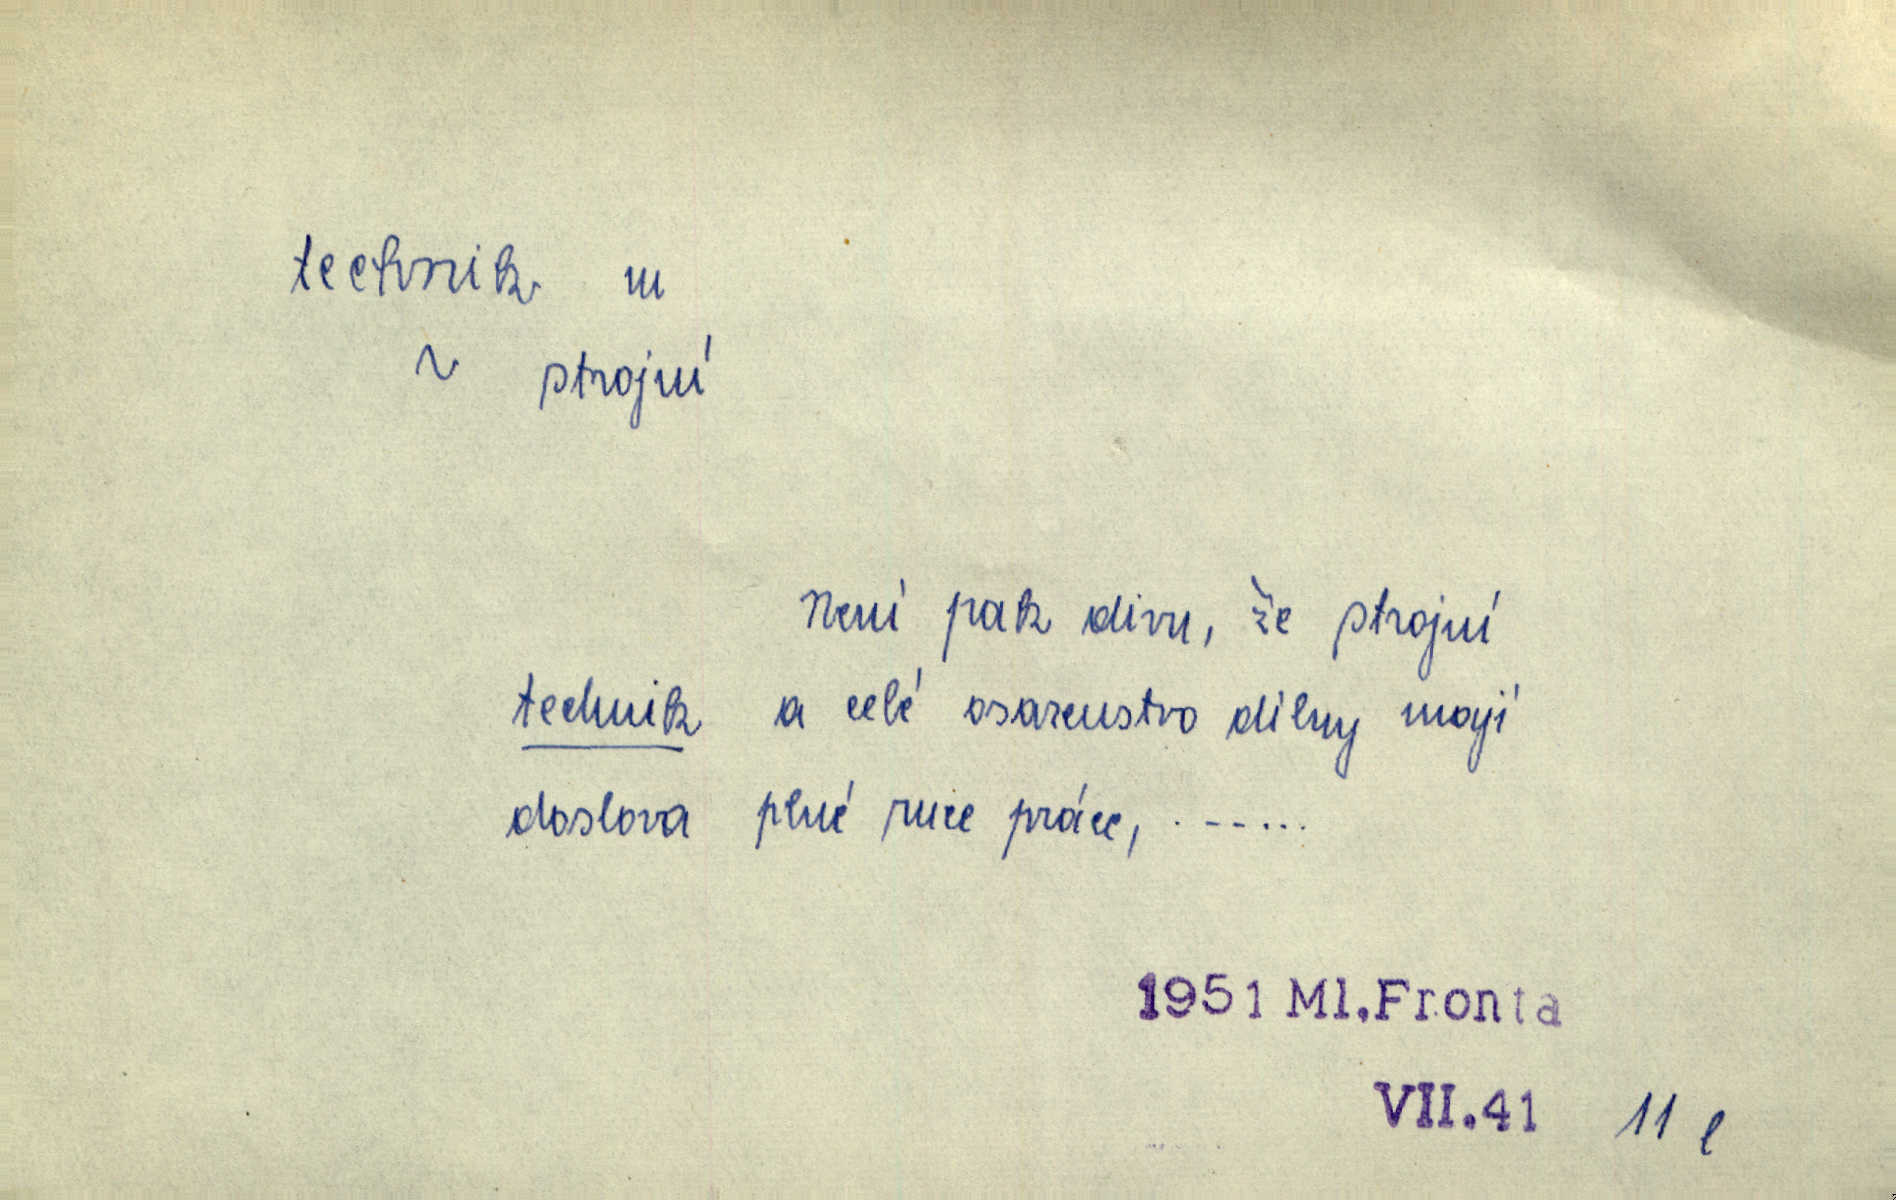 technik m
~ strojní
Není pak divu, že strojní
technik a celé osazenstvo dílny mají
doslova plné ruce práce, . - - . . .
1951 Ml.Fronta
VII.41 11 l